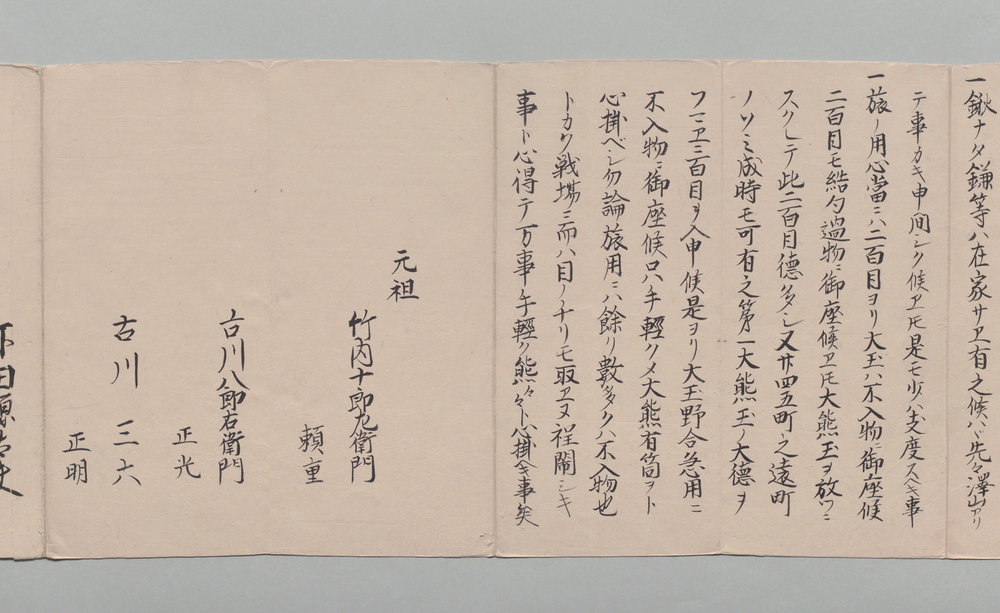 一鍬ナタ鎌等ハ在家サヱ有之候ハヾ先々澤山アリ
テ事カキ申間シク候ヱ𪜈是モ少ハ支度スヘキ事
一旅ノ用心當ニハ二百目ヨリ大玉ハ不入物ニ御座候
二百目モ結句過物ニ御座候ヱ𪜈大熊玉ヲ放ツニ
スクレテ此二百目德多シ又廿四五町之遠町
ノソミ成時モ可有之第一大熊玉ノ大德ヲ
フマヱ三百目ヲ入申候是ヨリ大玉野合急用ニ
不入物ニ御座候只ハ手輕クメ大熊有筒ヲト
心掛ベシ勿論旅用ニハ餘リ數多クハ不入物也
トカク戦場ニ而ハ目ノチリモ取ヱヌ程閙シキ
事ト心得テ万事手輕ク熊々ト心掛ヘキ事矣
元祖
竹内十郎左衛門
頼重
古川八郎右衛門
正光
古川三六
正明